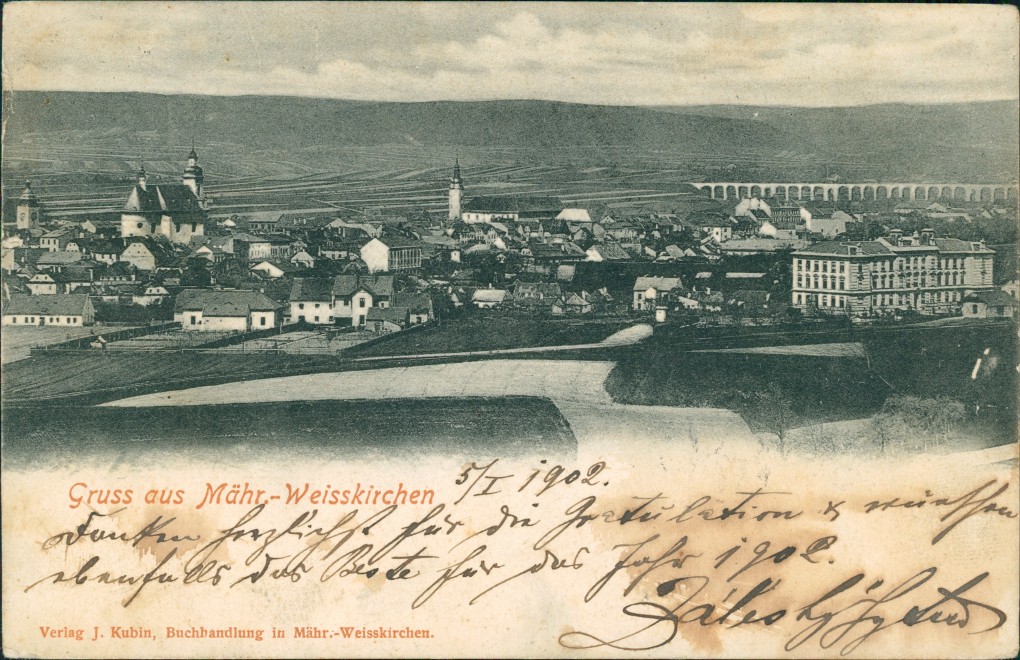 Gruss aus Mähr.-Weisskirchen
5/I 1902.
Danken herzlichst für die Gratulation & wünschen
ebenfalls das Beste für das Jahr 1902.
Verlag J. Kubin, Buchhandlung in Mähr.-Weisskirchen.